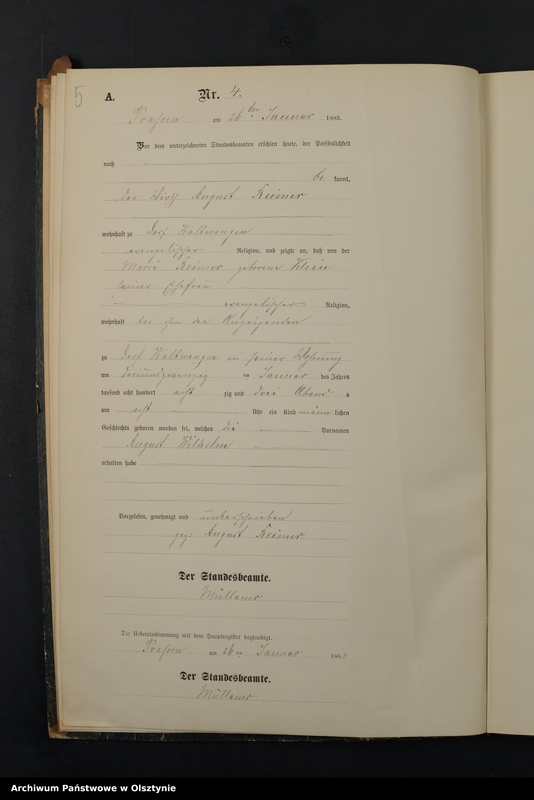 5
A.
Nr. 4.
am 26ten Januar 1883.
Vor dem unterzeichneten Standesbeamten erschien heute, der Persönlichkeit
nach
be kannt,
der Wirth August Keimer
wohnhaft zu Dorf Kaltwangen
evangelischer Religion, und zeigte an, daß von der
Maria Keimer geborene Klein
seiner Ehefrau
evangelischer Religion,
wohnhaft bei ihm dem Anzeigenden
zu Dorf Kaltwangen in seiner Wohnung
am dreiundzwanzig ten Januar des Jahres
tausend acht hundert acht zig und drei Abend s
um acht Uhr ein Kind männ lichen
Geschlechts geboren worden sei, welches die Vornamen
August Wilhelm
erhalten habe
Vorgelesen, genehmigt und unterschrieben
gez. August Keimer
Der Standesbeamte.
Müllauer
Die Uebereinstimmung mit dem Hauptregister beglaubigt.
am 26ten Januar 1883
Der Standesbeamte.
Müllauer
Archiwum Państwowe w Olsztynie